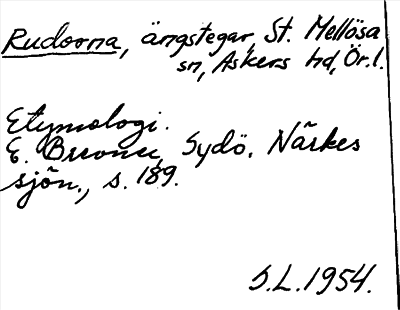 Rudorna, ängstegar, St. Mellösa
sn, Askers hd, Ör.l.
Etymologi.
E. Brevner, Sydö. Närkes
sjön., s. 189.
S.L. 1954.